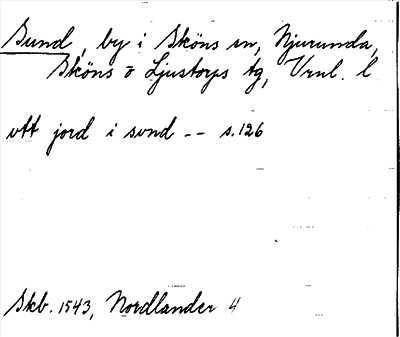 Sund, by i Sköns sn, Njurunda,
Sköns o Ljustorps tg, Vrnl. l
vtt jord i svnd -- s. 126
Skb. 1543, Nordlander 4